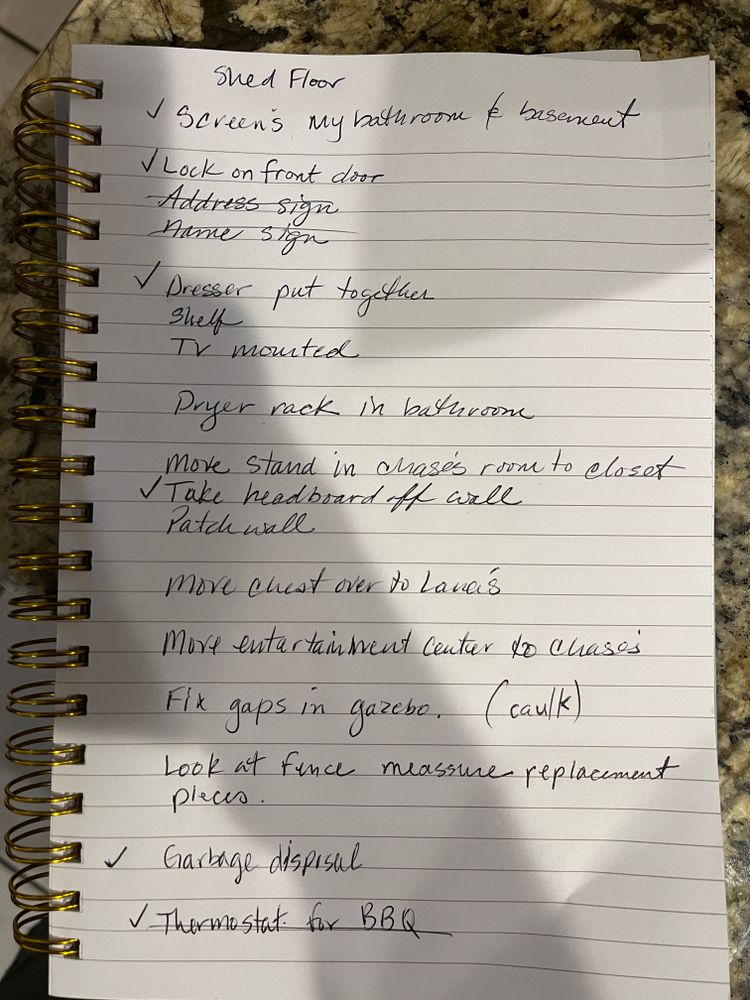 Shed Floor
✓ Screen's My bathroom & basement
✓ Lock on front door
Address sign
Name sign
✓ Dresser put together
Shelf
TV mounted
Dryer rack in bathroom
Move stand in chase's room to closet
✓ Take headboard off wall
Patch wall
Move chest over to Lana's
Move entertainment center to chase's
Fix gaps in gazebo. (caulk)
Look at fence meassure replacement
pieces.
✓ Garbage disposal
✓ Thermostat for BBQ